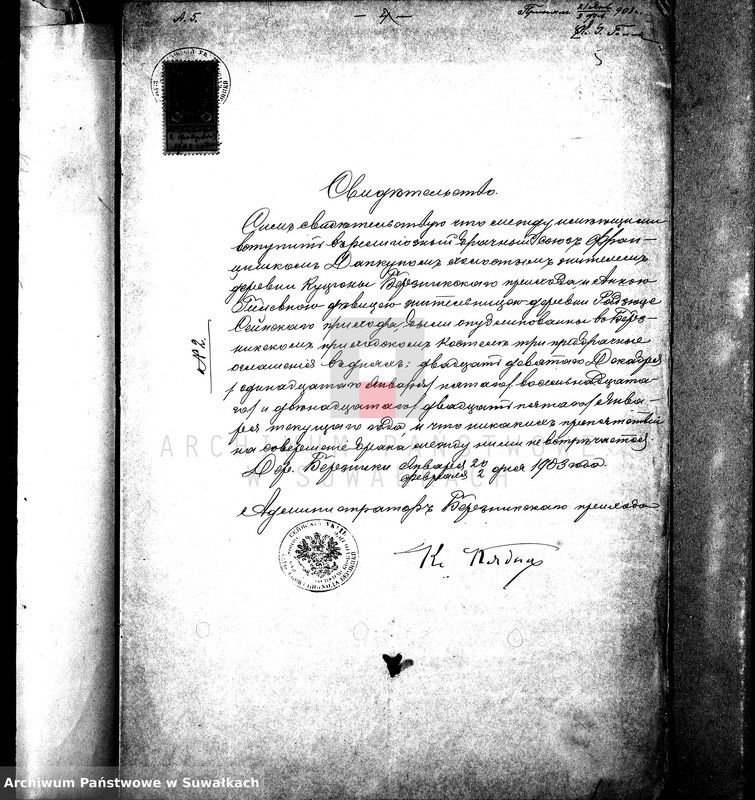 А. 5.
— 4 —
Свидѣтельство.
Симъ свидѣтельствую что между желающими
вступить въ религіозный брачный союзъ Фран-
цишкомъ Дапкуномъ холостымъ жителемъ
деревни Куцюны Березникского прихода и Анною
дѣвицею жительницею деревни Радзюце
Сейнского прихода, были опубликованы въ Берез-
никскомъ приходскомъ костелѣ три предбрачные
оглашенія въ дняхъ: двадцать девятаго Декабря
/одинадцатаго Января/ пятаго /восемьнадцата-
го/ и двѣнадцатаго /двадцать пятаго/ Янва-
ря текущаго года и что никакихъ препятствій
на совершеніе брака между ними не встрѣчается
Дер. Березники Января 20
Февраля 2 дня 1903 года.
Администраторъ Березникского прихода
Кс.
№ 2.
ARCHIWUM PAŃSTWOWE
W SUWAŁKACH
Archiwum Państwowe w Suwałkach